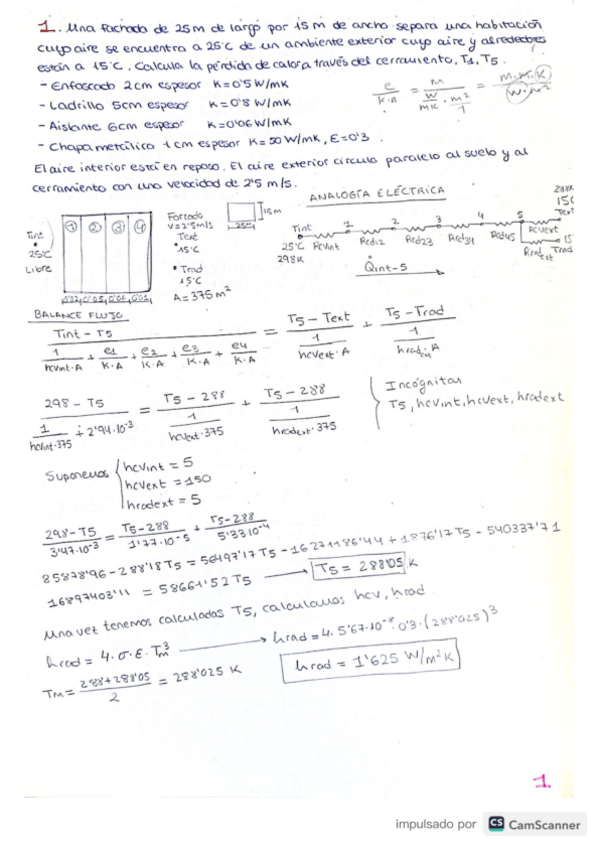 1. Una fachada de 25m de largo por 15m de ancho separa una habitación
cuyo aire se encuentra a 25°C de un ambiente exterior cuyo aire y alrededores
están a 15°C. Calcula la pérdida de calor a través del cerramiento, T1, T5.
- Enfoscado 2cm espesor K=0'5 W/mK
- Ladrillo 5cm espesor K=0'8 W/mK
- Aislante 6cm espesor K=0'06 W/mK
- Chapa metálica 1cm espesor K=50 W/mK, E=0'3.
e/K·A = m/(W/mK · m²/1) = m·m·K/W·m²
El aire interior está en reposo. El aire exterior circula paralelo al suelo y al
cerramiento con una velocidad de 2'5 m/s.
ANALOGÍA ELÉCTRICA
Tint
25°C
Libre
1 2 3 4
Forzado
V=2'5m/s
Text
15°C
Trad
15°C
A=375m²
15m
25m
Tint 1 2 3 4 5
25°C Rcvint Rcd12 Rcd23 Rcd34 Rcd45 Rcvext
298K
288K
15°C
Text
Rradext Trad
Q̇int-5
BALANCE FLUJO
(Tint - T5)/(1/hcvint·A + e1/K·A + e2/K·A + e3/K·A + e4/K·A) = (T5 - Text)/(1/hcvext·A) + (T5 - Trad)/(1/hrad·A)
(298 - T5)/(1/hcvint·375 + 2'94·10⁻³) = (T5 - 288)/(1/hcvext·375) + (T5 - 288)/(1/hradext·375)
Incógnitas
T5, hcvint, hcvext, hradext
Suponemos
hcvint = 5
hcvext = 150
hradext = 5
(298 - T5)/(3'47·10⁻³) = (T5 - 288)/(1'77·10⁻⁵) + (T5 - 288)/(5'33·10⁻⁴)
85878'96 - 288'18T5 = 56497'17T5 - 16271186'44 + 1876'17T5 - 540337'71
16897403'11 = 58661'52T5 → T5 = 288'05 K
Una vez tenemos calculadas T5, calculamos hcv, hrad.
hrad = 4·σ·E·Tm³ → hrad = 4·5'67·10⁻⁸·0'3·(288'025)³
TM = (288+288'05)/2 = 288'025 K
hrad = 1'625 W/m²K
1.
impulsado por CS CamScanner